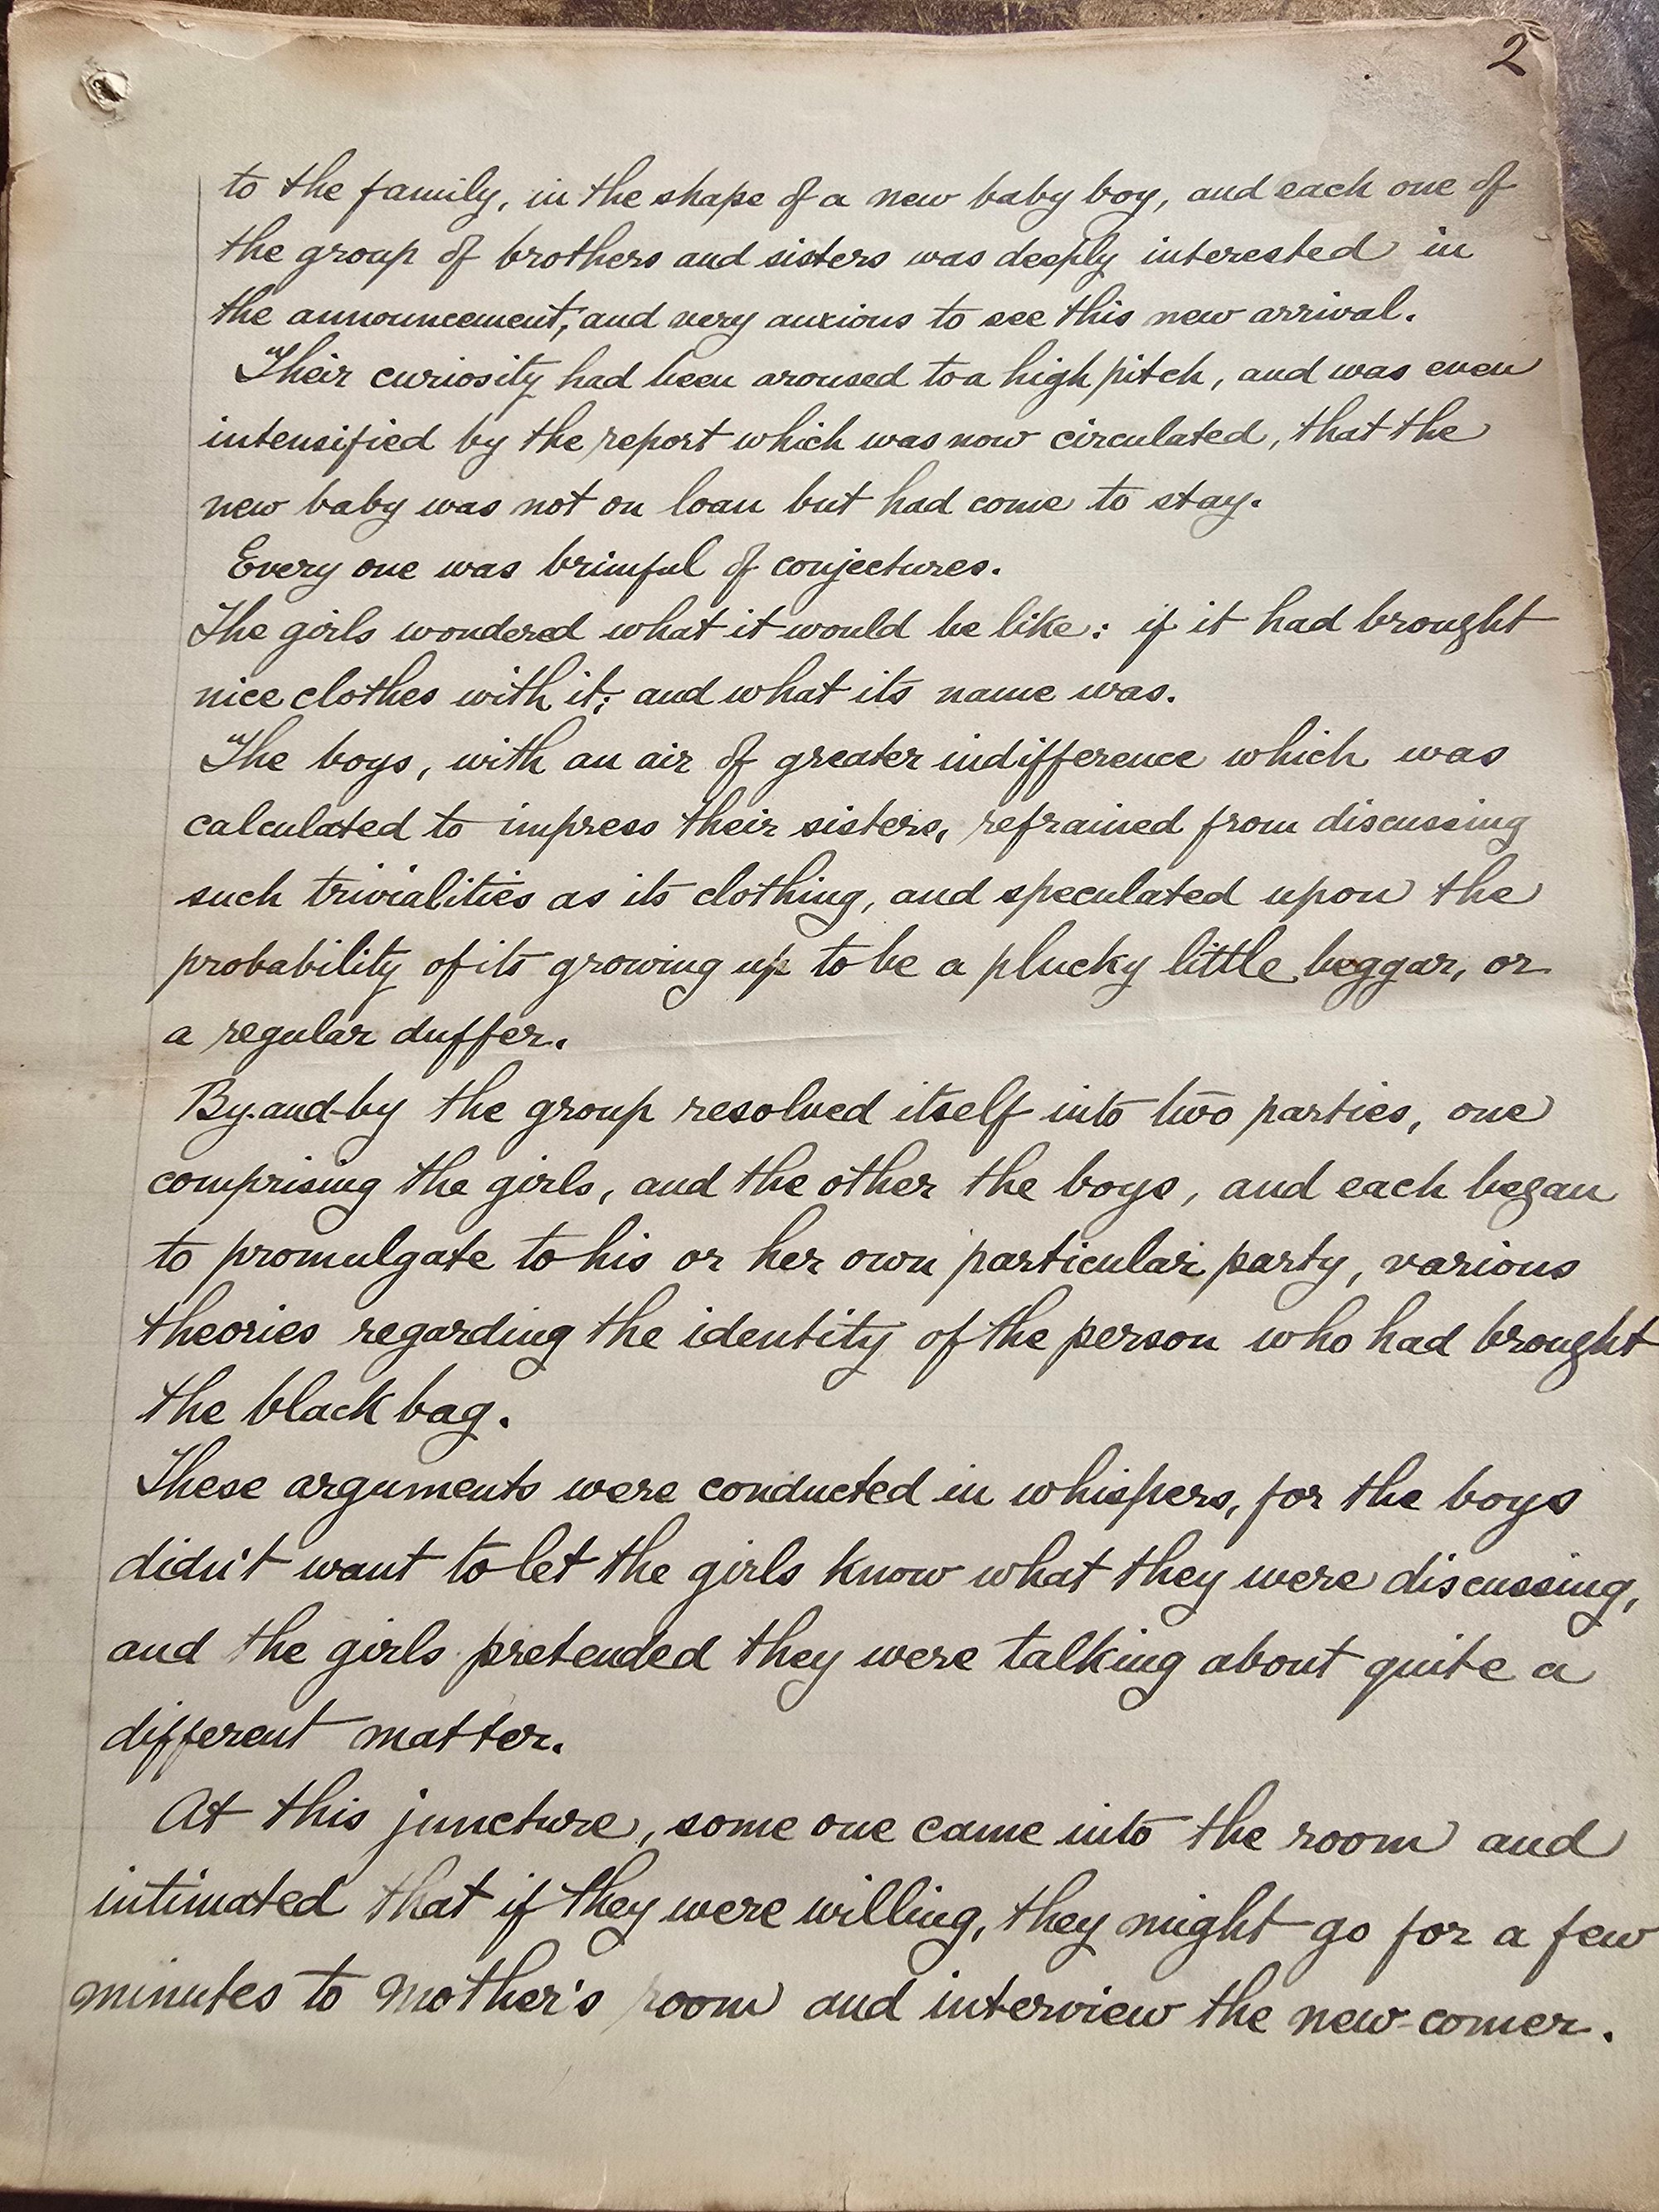 2
to the family, in the shape of a new baby boy, and each one of
the group of brothers and sisters was deeply interested in
the announcement, and very anxious to see this new arrival.
Their curiosity had been aroused to a high pitch, and was even
intensified by the report which was now circulated, that the
new baby was not on loan but had come to stay.
Every one was brimful of conjectures.
The girls wondered what it would be like: if it had brought
nice clothes with it; and what its name was.
The boys, with an air of greater indifference which was
calculated to impress their sisters, refrained from discussing
such trivialities as its clothing, and speculated upon the
probability of its growing up to be a plucky little beggar, or
a regular duffer.
By-and-by the group resolved itself into two parties, one
comprising the girls, and the other the boys, and each began
to promulgate to his or her own particular party, various
theories regarding the identity of the person who had brought
the black bag.
These arguments were conducted in whispers, for the boys
didn't want to let the girls know what they were discussing,
and the girls pretended they were talking about quite a
different matter.
At this juncture, some one came into the room and
intimated that if they were willing, they might go for a few
minutes to Mother's room and interview the new-comer.